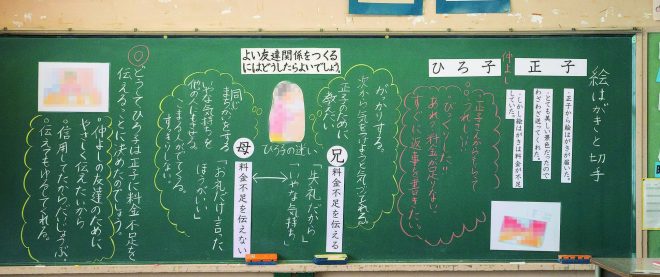 絵はがきと切手
正子
仲よし
ひろ子
・正子から絵はがきが届いた。
・とても美しい景色だったので
わざわざ送ってくれた。
・しかし絵はがきは料金が不足
していた。
正子さんからだ
うれしい!
びっくりした!!
あれっ、料金が足りない。
すぐに返事を書きたい。
よい友達関係をつくる
にはどうしたらよいでしょう
がっかりする。
次から気をつけようと
正子のために
教えたい
ひろ子の迷い
兄
料金不足を伝える
「失礼だから」
「いやな気持ち」
母
料金不足を伝えない
「お礼だけ言った
ほうがいい」
同じ
まちがいをする。
いやな気持ちを
他の人にもさせる。
こまる人がでてくる。
◎どうしてひろ子は正子に料金不足を
伝えることに決めたのでしょう。
。仲よしの友達のために、
やさしく伝えたいから。
。信用してたらだいじょうぶ。
。伝えてもゆるしてくれる。